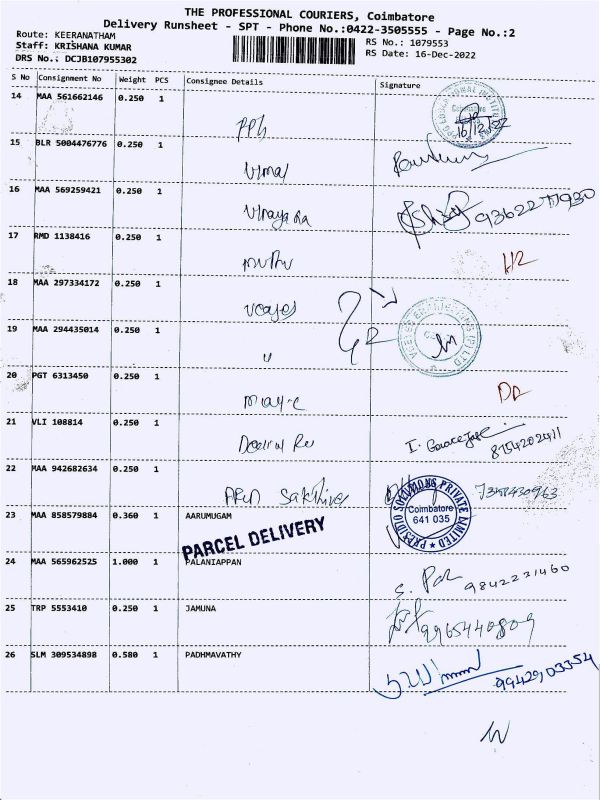 THE PROFESSIONAL COURIERS, Coimbatore
Delivery Runsheet - SPT - Phone No.:0422-3505555 - Page No.:2
Route: KEERANATHAM
Staff: KRISHANA KUMAR
DRS No.: DCJB107955302
RS No.: 1079553
RS Date: 16-Dec-2022
S No Consignment No Weight PCS Consignee Details Signature
14 MAA 561662146 0.250 1
16/12/22
15 BLR 5004476776 0.250 1
Vimal
16 MAA 569259421 0.250 1
Vinayaka 9362277930
17 RMD 1138416 0.250 1
Muthu
18 MAA 297334172 0.250 1
19 MAA 294435014 0.250 1
"
20 PGT 6313450 0.250 1
21 VLI 108814 0.250 1
8754202411
22 MAA 942682634 0.250 1
Arun Sakthivel
PRESIDIO SOLUTIONS PRIVATE LIMITED
Coimbatore
641 035
23 MAA 858579884 0.360 1 AARUMUGAM
PARCEL DELIVERY
24 MAA 565962525 1.000 1 PALANIAPPAN
9842231460
25 TRP 5553410 0.250 1 JAMUNA
9965440809
26 SLM 309534898 0.580 1 PADHMAVATHY
9942903354